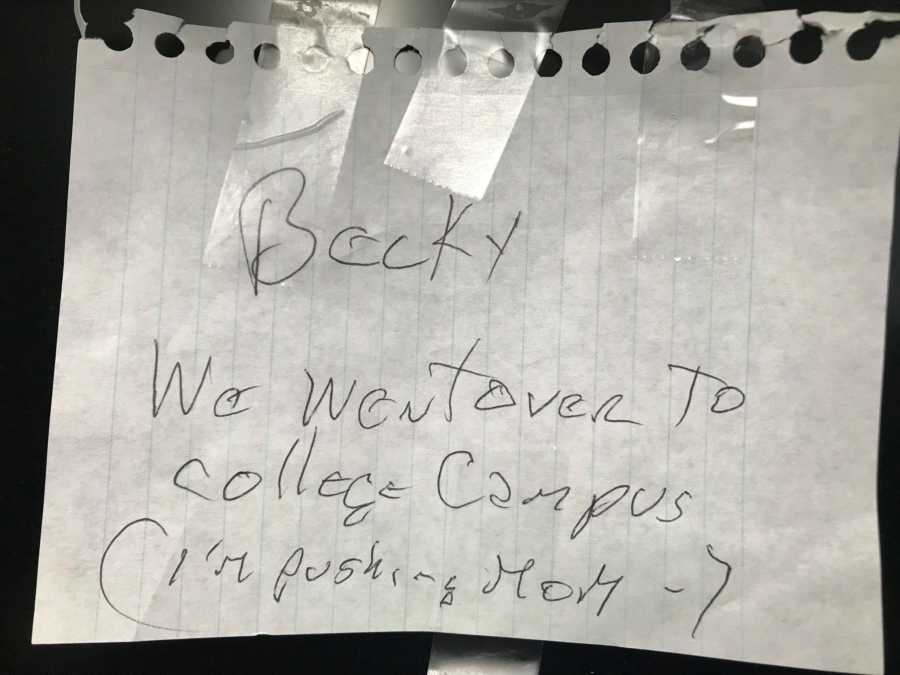 Becky
We went over to
college Campus
(I'm pushing Mom -)